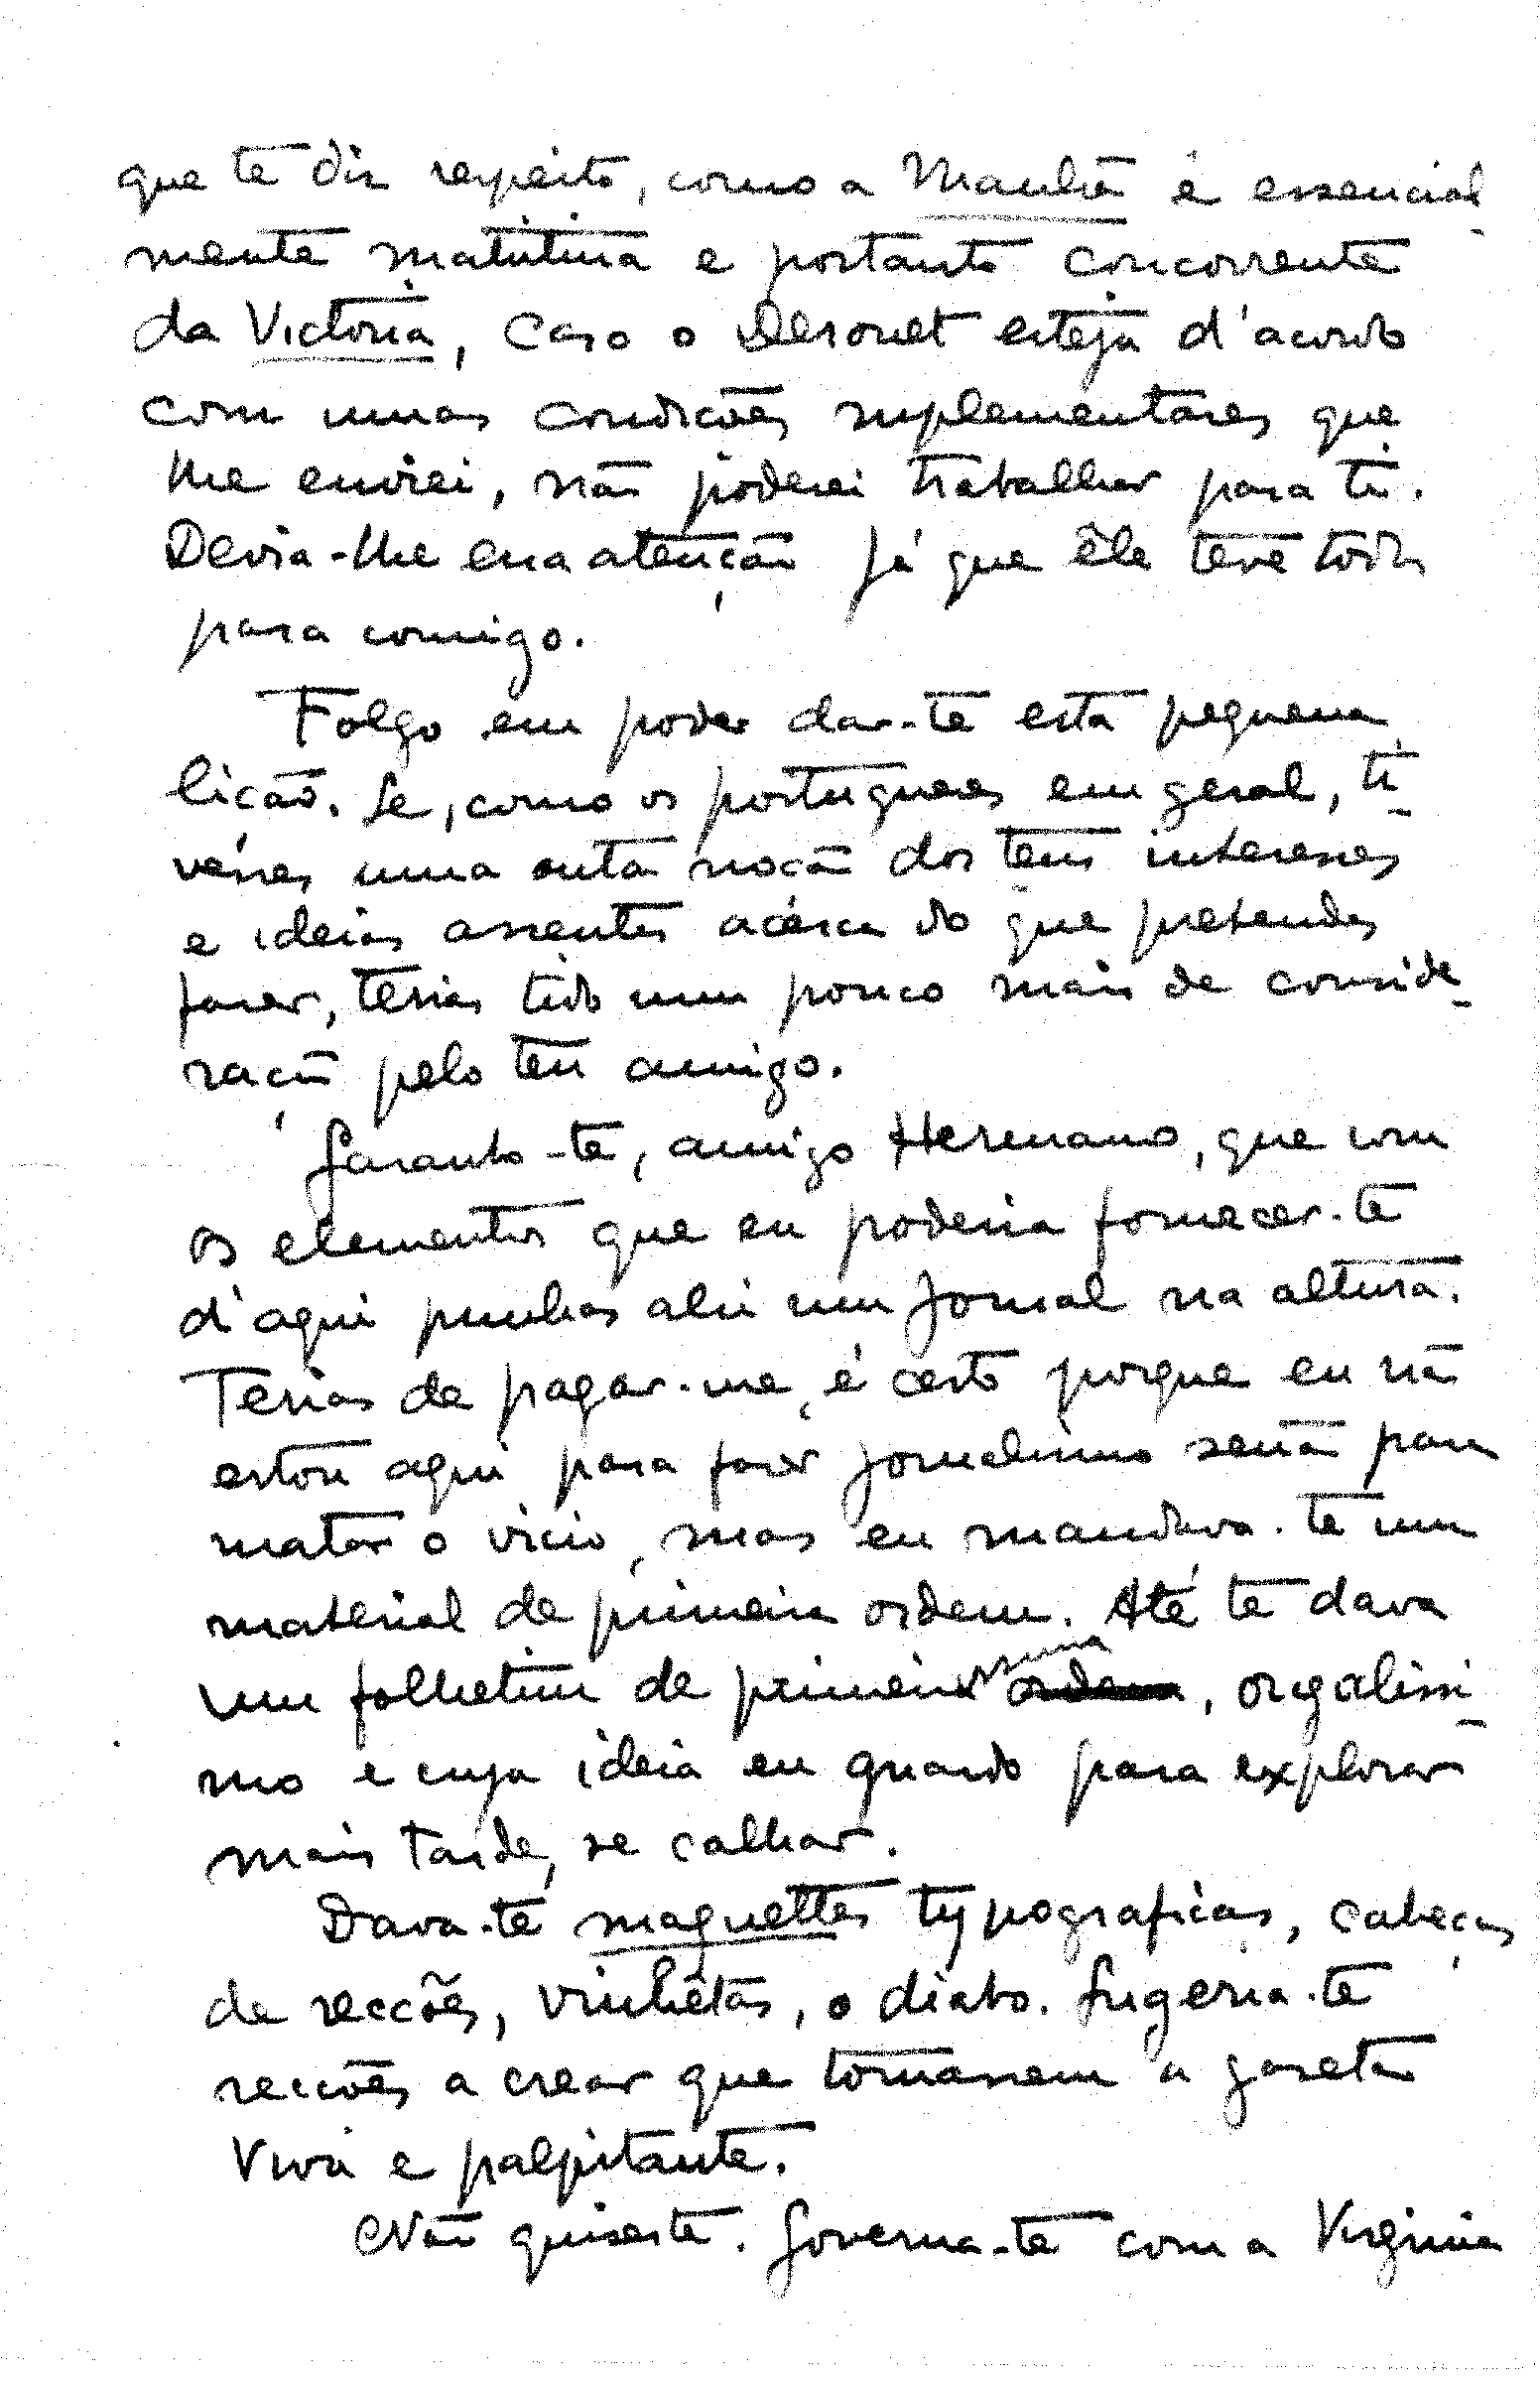 que te diz respeito, como a Manhã é essencial-
mente matutina e portanto concorrente
da Victoria, caso o Desonet esteja d'acordo
com umas condições suplementares que
lhe enviei, não poderei trabalhar para ti.
Devia-lhe essa atenção já que êle teve todas
para comigo.
Folgo em poder dar-te esta pequena
lição. Se, como os portugueses em geral, ti-
vesses uma outra noção dos teus interesses
e ideias assentes acêrca do que pretendes
fazer, terias tido um pouco mais de conside-
ração pelo teu amigo.
Garanto-te, amigo Hermano, que com
os elementos que eu poderia fornecer-te
d'aqui punhas ahi um jornal na altura.
Terias de pagar-me, é certo porque eu não
estou aqui para fazer jornalismo senão para
matar o vicio, mas eu mandava-te um
material de primeira ordem. Até te dava
um folhetim de primeirissima ordem,
mo e cuja ideia eu guardo para explorar
mais tarde, se calhar.
Dava-te maquettes typograficas, cabeças
de secções, vinhêtas, o diabo. Sugeria-te
secções a crear que tornassem a gazeta
viva e palpitante.
Não quiseste. Governa-te com a Virginia